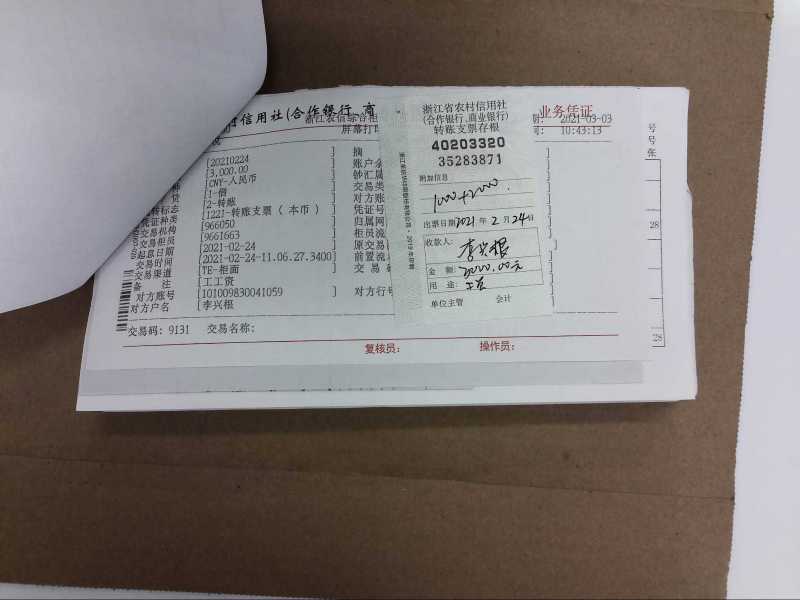 村信用社(合作银行、商
业务凭证
浙江农信综合柜
期: 2021-03-03
屏幕打印
间: 10:43:13
[20210224 ] 摘
[3,000.00 ] 账户余
[CNY-人民币 ] 钞汇属
[1-借 ] 交易类
[2-转账 ] 对方账
转标志 [1221-转账支票(本币) ] 凭证号
[966050 ] 归属网
[9661663 ] 柜员流
[2021-02-24 ] 原交易
[2021-02-24-11.06.27.3400 ] 前置流
交易渠道 [TE-柜面 ] 交易
备 注 [工工资
对方账号 [101009830041059 ] 对方行号
对方户名 [李兴根 ]
交易码: 9131 交易名称:
复核员: 操作员:
浙江省农村信用社
(合作银行、商业银行)
转账支票存根
40203320
35283871
附加信息
1000+2000
出票日期2021年2月24日
收款人:
李兴根
金 额: 3000.00元
用 途: 工资
单位主管 会计
号
号
张
28